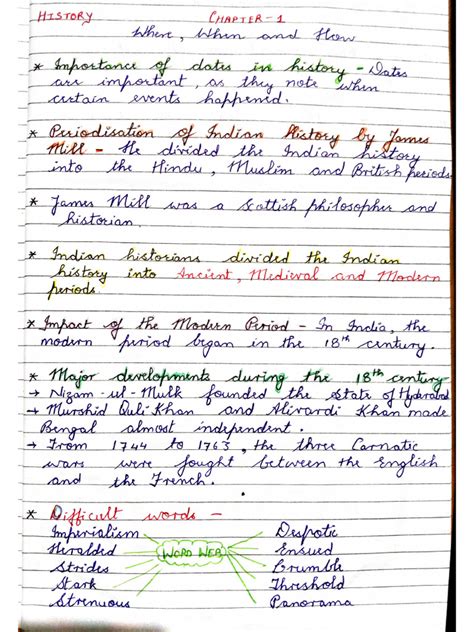 HISTORY
CHAPTER-1
Where, When and How
* Importance of dates in history - Dates
are important, as they note when
certain events happened.
* Periodisation of Indian History by James
Mill - He divided the Indian history
into the Hindu, Muslim and British periods
* James Mill was a Scottish philosopher and
historian.
* Indian historians divided the Indian
history into Ancient, Medieval and Modern
periods.
* Impact of the Modern Period - In India, the
modern period began in the 18th century.
* Major developments during the 18th century
→ Nizam-ul-Mulk founded the State of Hyderabad
→ Murshid Quli Khan and Alivardi Khan made
Bengal almost independent.
→ From 1744 to 1763, the three Carnatic
wars were fought between the English
and the French.
* Difficult words -
Imperialism Despotic
Heralded WORD WEB Ensued
Strides Crumble
Stark Threshold
Strenuous Panorama